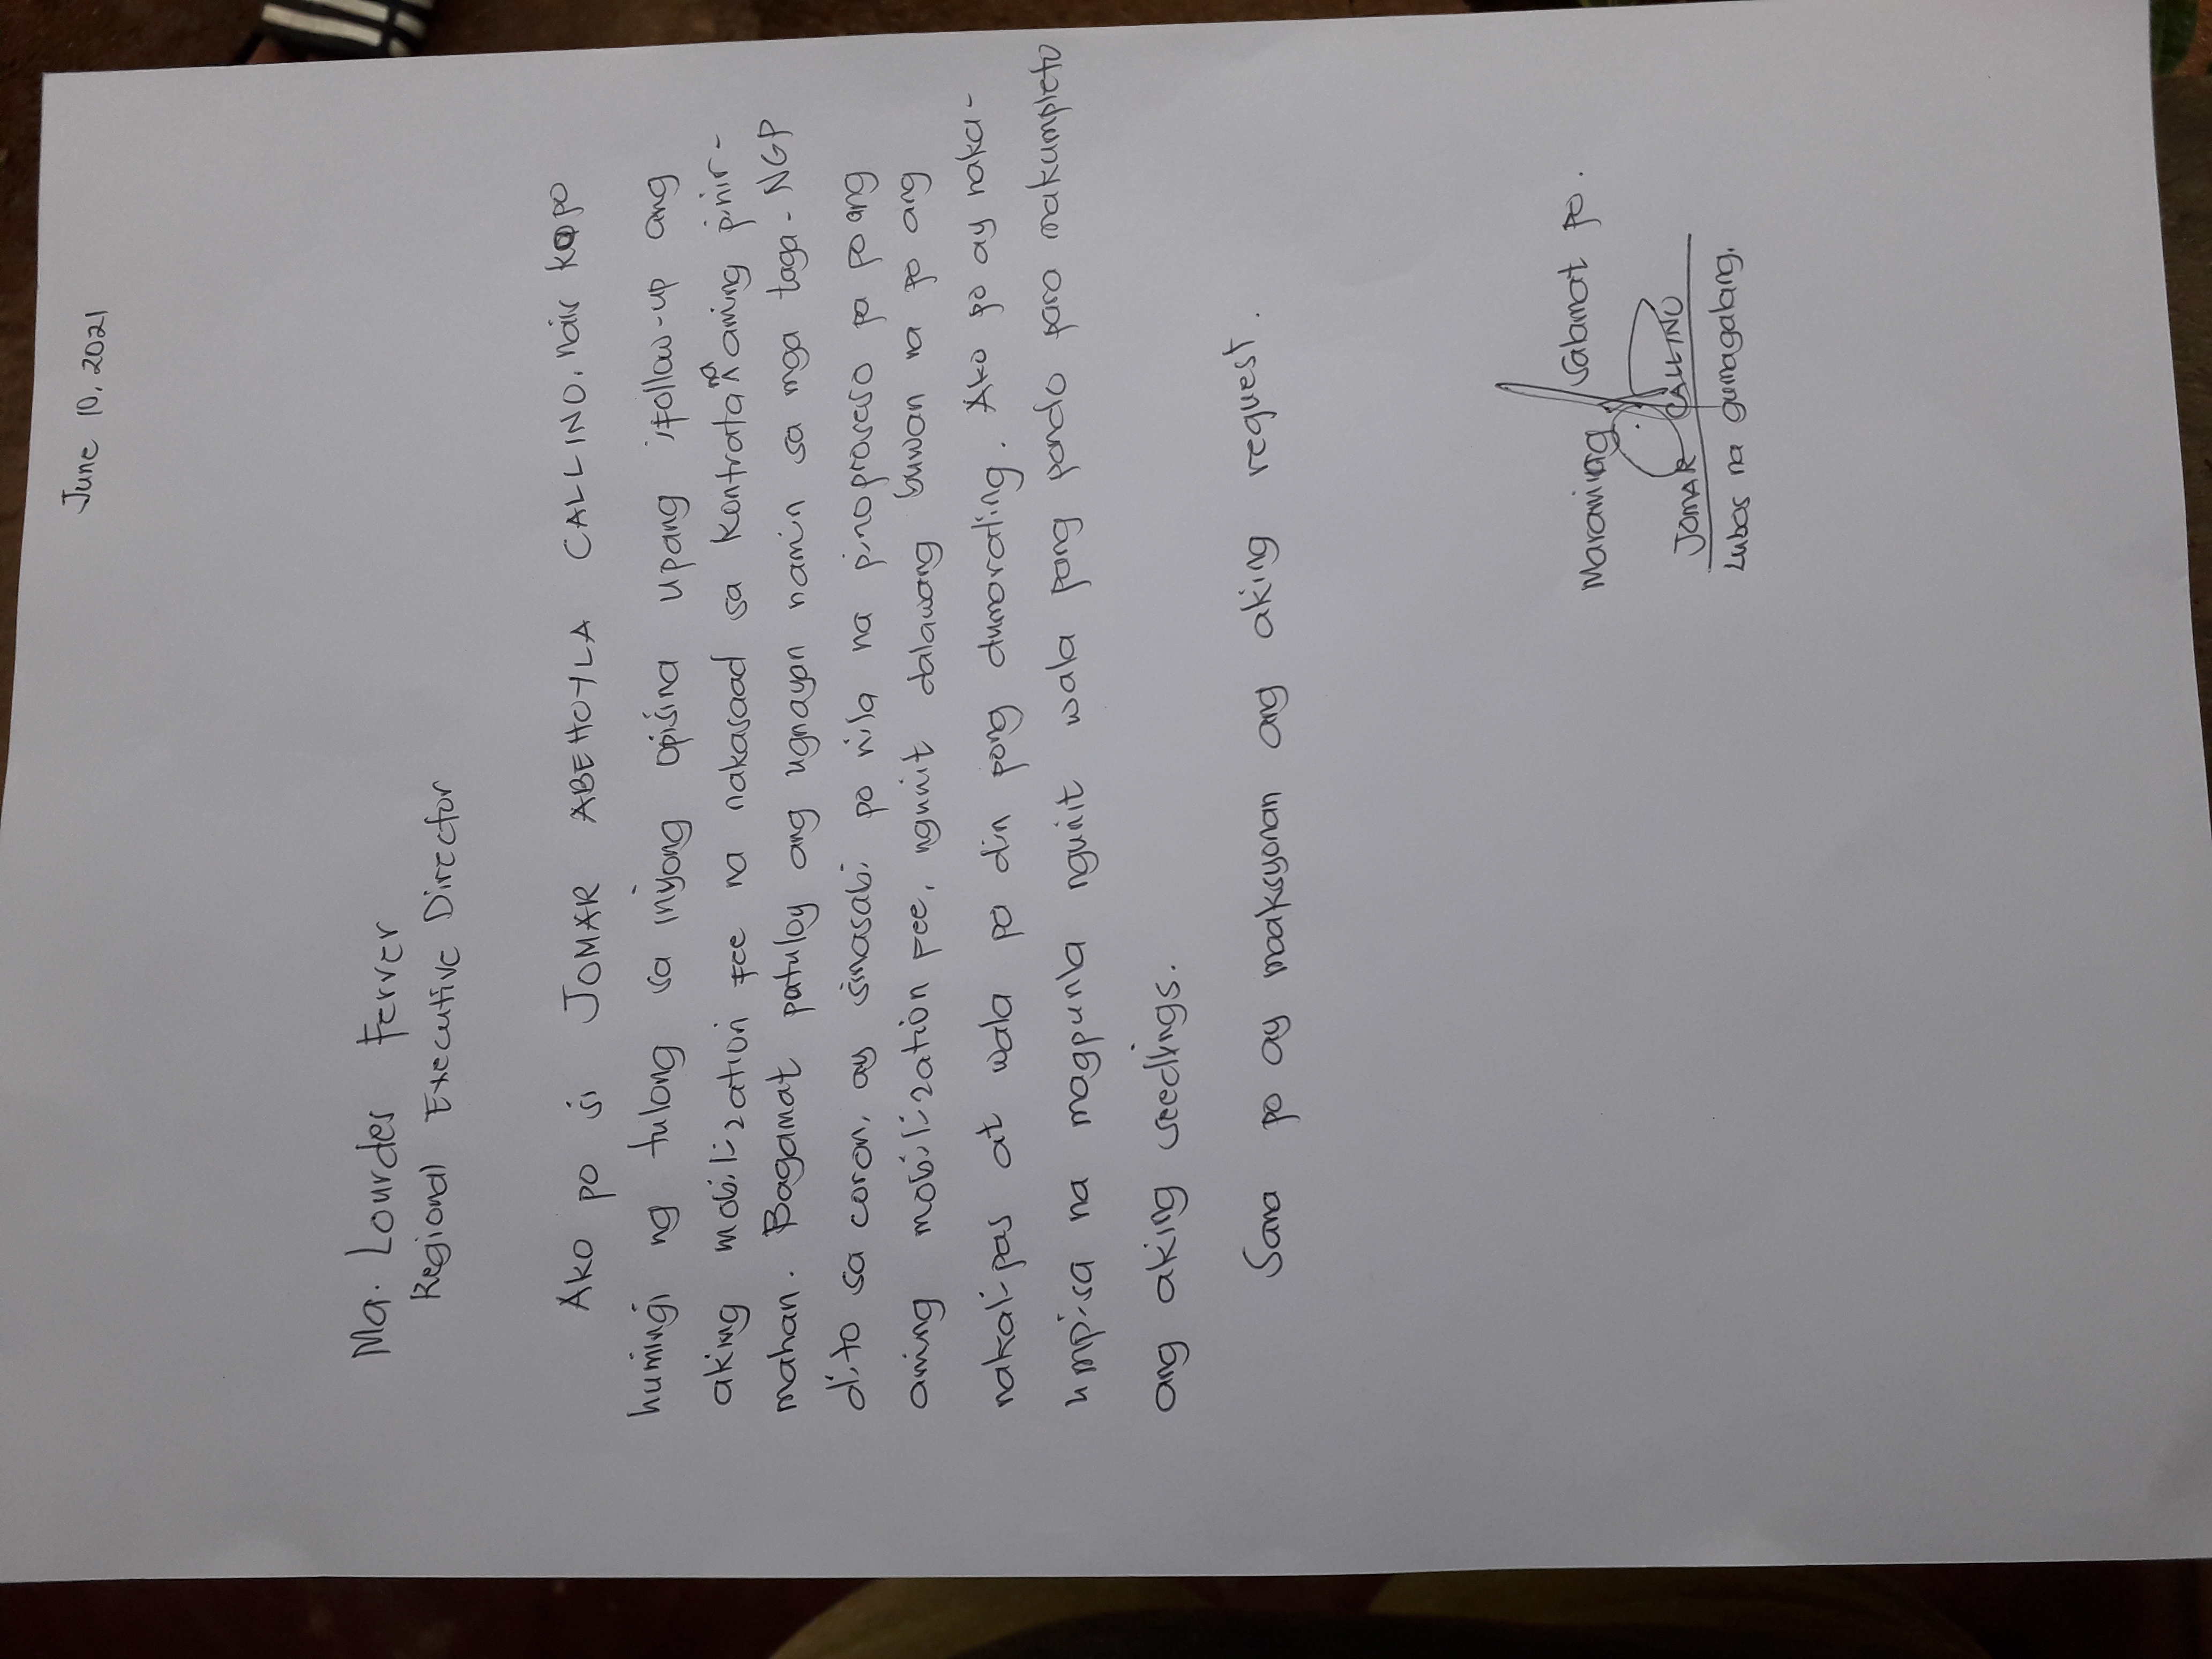 June 10, 2021
Ma. Lourdes Ferrer
Regional Executive Director
Ako po si JOMAR ABEHOYLA CALLINO, nais ko po
humingi ng tulong sa inyong opisina upang ifollow-up ang
aking mobilization fee na nakasaad sa kontrata na aming pinir-
mahan. Bagamat patuloy ang ugnayan namin sa mga taga-NGP
dito sa coron, ay sinasabi po nila na pinoproseso pa po ang
aming mobilization fee, ngunit dalawang buwan na po ang
nakali-pas at wala pa din pong dumarating. Ako po ay naka-
umpisa na magpunla ngunit wala pang pondo para makumpleto
ang aking seedlings.
Sana po ay maaksyonan ang aking request.
Maraming Salamat po.
JOMAR CALLINO
Lubos na gumagalang.